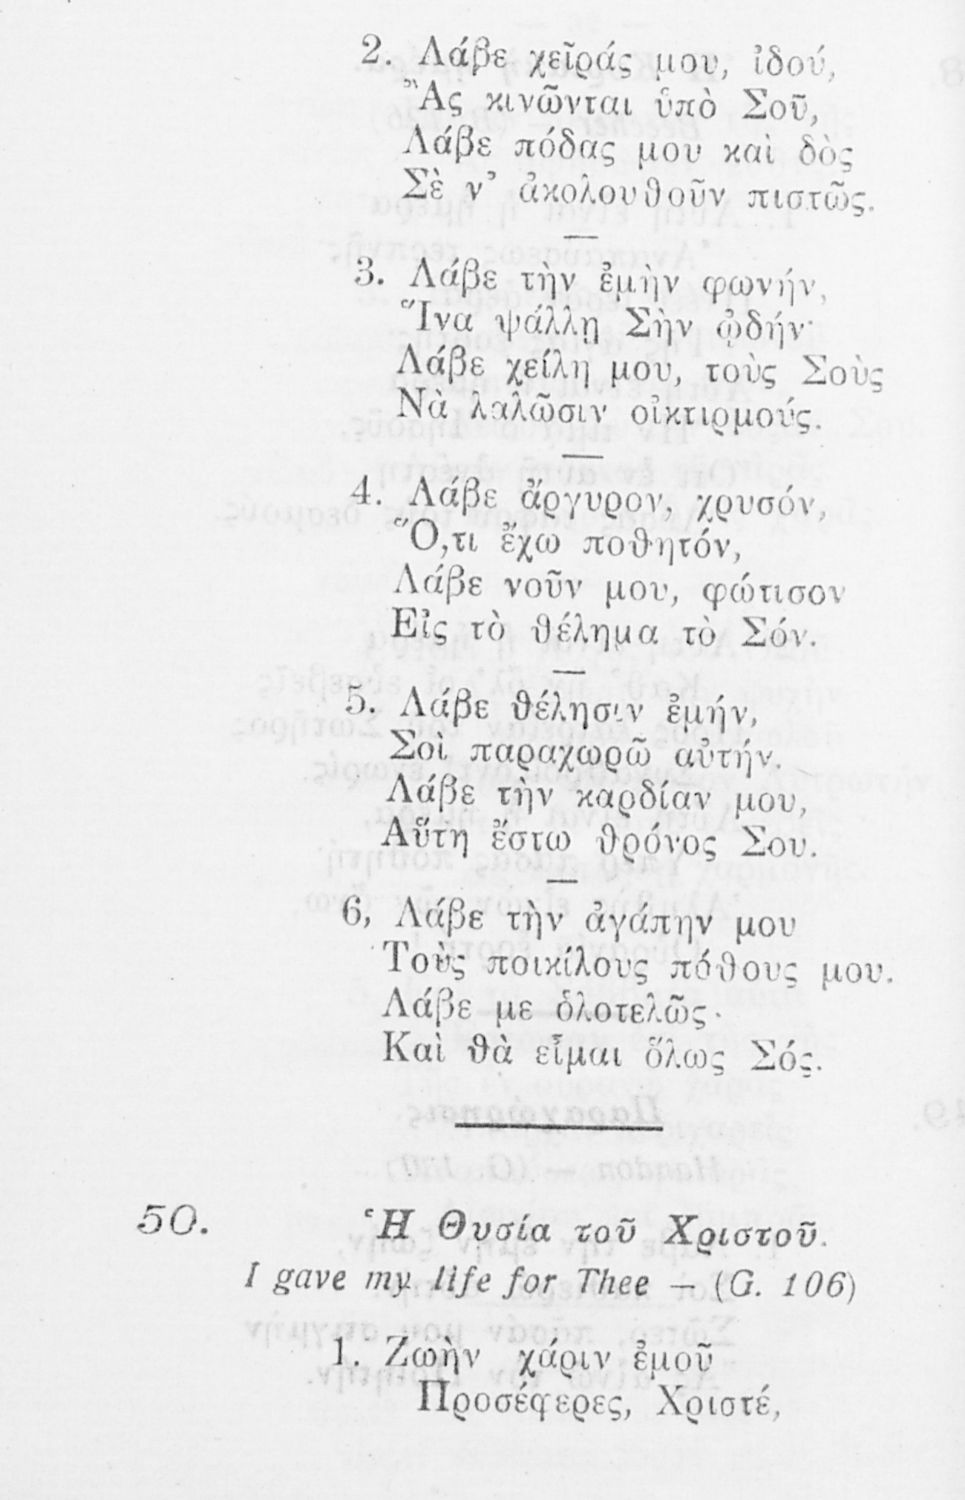 2. Λάβε χεῖράς μου, ἰδού,
Ἂς κινῶνται ὑπὸ Σοῦ,
Λάβε πόδας μου καὶ δὸς
Σὲ ν' ἀκολουθοῦν πιστῶς.
3. Λάβε τὴν ἐμὴν φωνήν,
Ἵνα ψάλλῃ Σὴν ᾠδήν·
Λάβε χείλη μου, τοὺς Σοὺς
Νὰ λαλῶσιν οἰκτιρμούς.
4. Λάβε ἄργυρον, χρυσόν,
Ὅ,τι ἔχω ποθητόν,
Λάβε νοῦν μου, φώτισον
Εἰς τὸ θέλημα τὸ Σόν.
5. Λάβε θέλησιν ἐμήν,
Σοὶ παραχωρῶ αὐτήν.
Λάβε τὴν καρδίαν μου,
Αὕτη ἔστω θρόνος Σου.
6, Λάβε τὴν ἀγάπην μου
Τοὺς ποικίλους πόθους μου.
Λάβε με ὁλοτελῶς·
Καὶ θὰ εἶμαι ὅλως Σός.
50. Ἡ Θυσία τοῦ Χριστοῦ.
I gave my life for Thee — (G. 106)
1. Ζωὴν χάριν ἐμοῦ
Προσέφερες, Χριστέ,